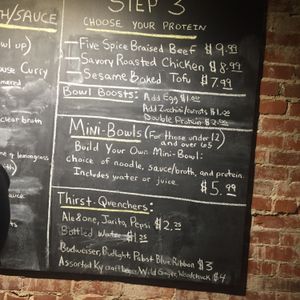 H/SAUCE
owl up)
ouse Curry
mered
clear broth
lemongrass
STEP 3
CHOOSE YOUR PROTEIN
Five Spice Braised Beef $9.99
Savory Roasted Chicken $8.99
Sesame Baked Tofu $7.99
Bowl Boosts: Add Egg $1.00
Add Zucchini/carrots $1.00
Double Protein
Mini-Bowls (For those under 12)
and over 65
Build Your Own Mini-Bowl:
choice of noodle, sauce/broth, and protein.
Includes water or juice.
$5.99
Thirst-Quenchers:
Ale8one, Jarito, Pepsi $2.25
Bottled Water $1.25
Budweiser, Budlight, Pabst Blue Ribbon $3
Assorted Ky craft beers, Wild Ginger, Woodchuck $4